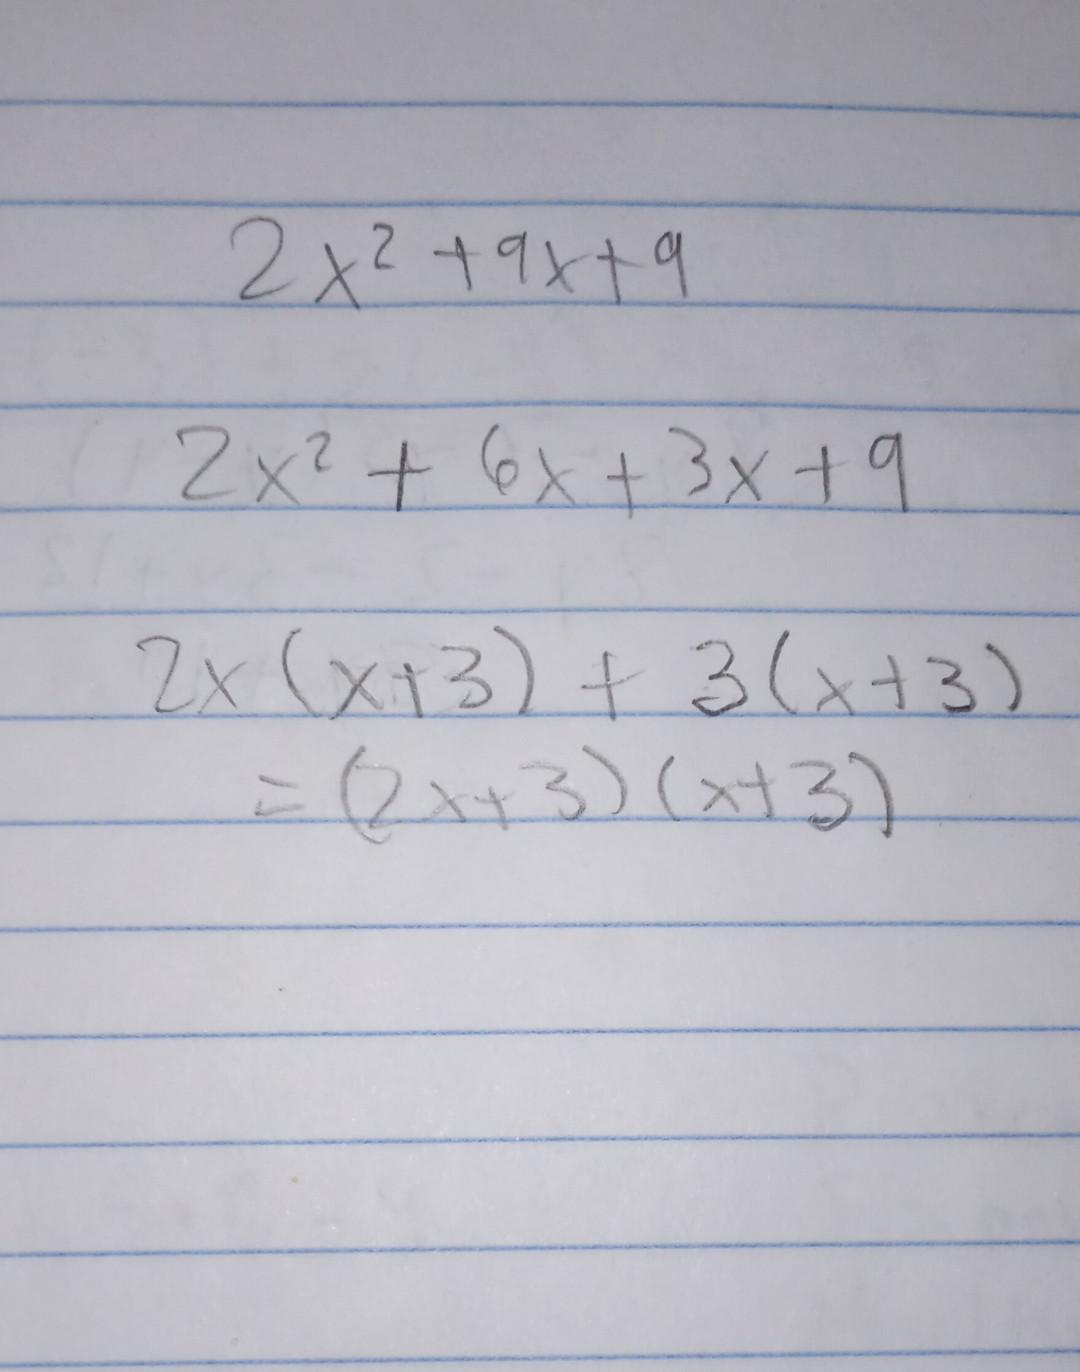 2x² + 9x + 9
2x² + 6x + 3x + 9
2x (x+3) + 3(x+3)
= (2x+3) (x+3)